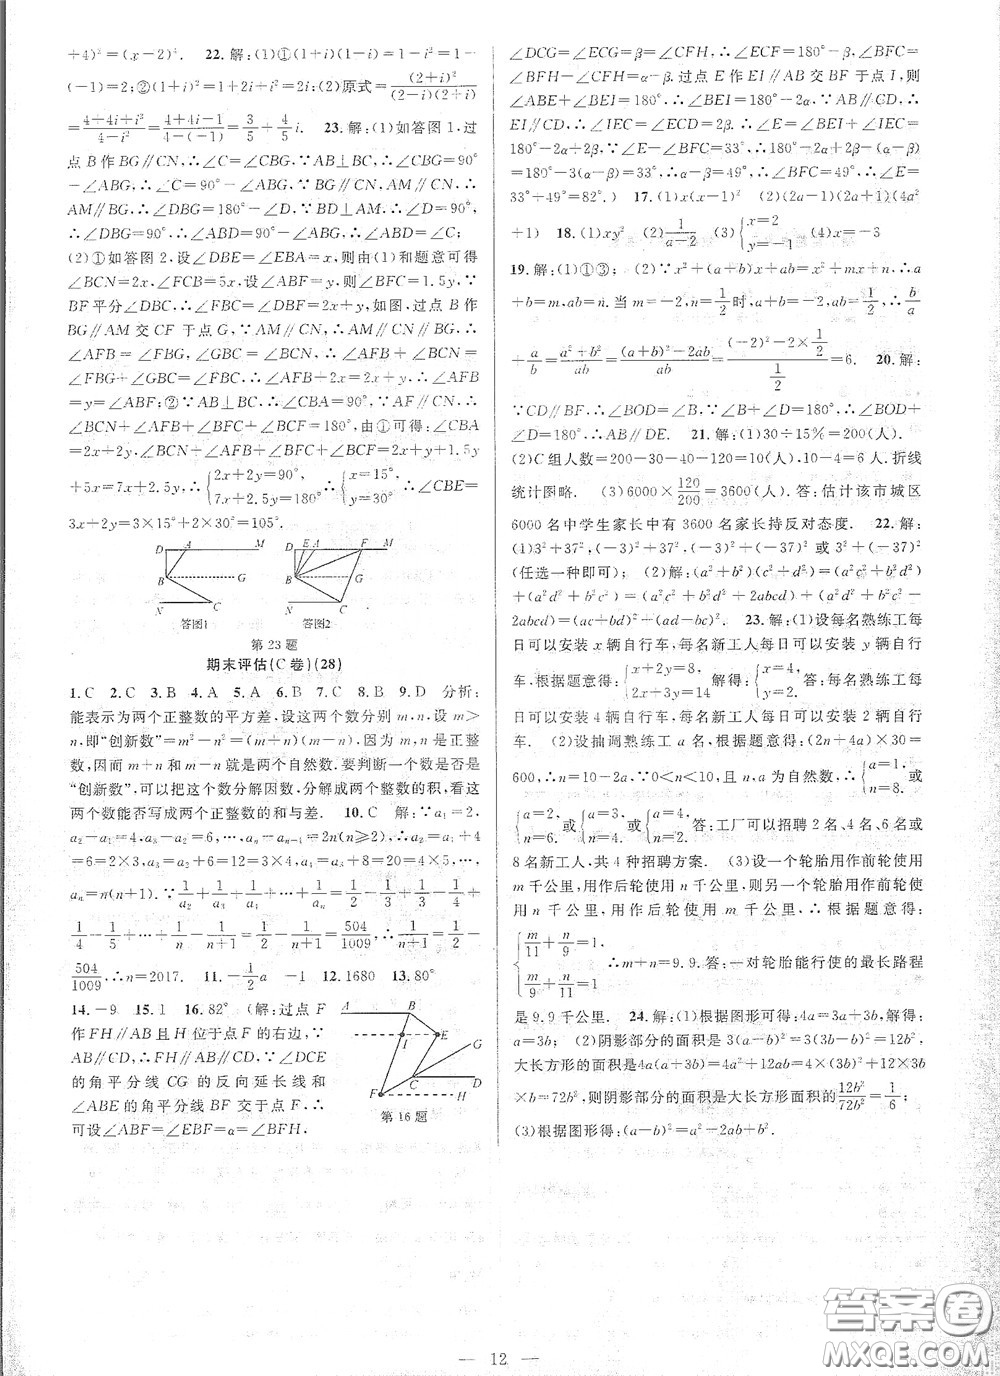 +4)²=(x-2)⁴.  22.解:(1)①(1+i)(1-i)=1-i²=1-
(-1)=2;②(1+i)²=1+2i+i²=2i;(2)原式=(2+i)²/(2-i)(2+i)
=(4+4i+i²)/(4-i²)=(4+4i-1)/(4-(-1))=3/5+4/5i.  23.解:(1)如答图1,过
点B作BG∥CN,∴∠C=∠CBG.∵AB⊥BC,∴∠CBG=90°
-∠ABG,∴∠C=90°-∠ABG.∵BG∥CN,AM∥CN,∴
AM∥BG,∴∠DBG=180°-∠D.∵BD⊥AM,∴∠D=90°,
∴∠DBG=90°,∴∠ABD=90°-∠ABG,∴∠ABD=∠C;
(2)①如答图2,设∠DBE=∠EBA=x,则由(1)和题意可得
∠BCN=2x,∠FCB=5x.设∠ABF=y,则∠BFC=1.5y,∵
BF平分∠DBC,∴∠FBC=∠DBF=2x+y,如图,过点B作
BG∥AM交CF于点G,∵AM∥CN,∴AM∥CN∥BG,∴
∠AFB=∠FBG,∠GBC=∠BCN,∴∠AFB+∠BCN=
∠FBG+∠GBC=∠FBC,∴∠AFB+2x=2x+y,∴∠AFB
=y=∠ABF;②∵AB⊥BC,∴∠CBA=90°.∵AF∥CN,∴
∠BCN+∠AFB+∠BFC+∠BCF=180°,由①可得:∠CBA
=2x+2y,∠BCN+∠AFB+∠BFC+∠BCF=2x+y+1.5y
+5x=7x+2.5y,∴{2x+2y=90°, 7x+2.5y=180° ∴{x=15°, y=30° ∴∠CBE=
3x+2y=3×15°+2×30°=105°.
D A M D E A F M
B G B G
N C N C
答图1 答图2
第23题
期末评估(C卷)(28)
1.C  2.C  3.B  4.A  5.A  6.B  7.C  8.B  9.D  分析:
能表示为两个正整数的平方差,设这两个数分别m,n,设m>
n,即“创新数”=m²-n²=(m+n)(m-n),因为m,n是正整
数,因而m+n和m-n就是两个自然数.要判断一个数是否是
“创新数”,可以把这个数分解因数,分解成两个整数的积,看这
两个数能否写成两个正整数的和与差.  10.C  解:∵a₁=2,
a₂-a₁=4,a₃-a₂=6,…,aₙ-aₙ₋₁=2n(n≥2),∴a₂=a₁+4
=6=2×3,a₃=a₂+6=12=3×4,a₄=a₃+8=20=4×5,…,
aₙ=n(n+1).∵1/a₁+1/a₂+1/a₃+…+1/aₙ=1-1/2+1/2-1/3+1/3-1/4+
1/4-1/5+…+1/n-1/(n+1)=1-1/(n+1)=1/2+504/1009,∴1/(n+1)=1/2-
504/1009,∴n=2017.  11.-1/2a  -1  12.1680  13.80°
14.-9  15.1  16.82°  (解:过点F
作FH∥AB且H位于点F的右边,∵
AB∥CD,∴CD∥FH,∵∠DCE
的角平分线CG的反向延长线和
∠ABE的角平分线BF交于点F,∴
可设∠ABF=∠EBF=α=∠BFH,
A B
I E
G
C D
F H
第16题
∠DCG=∠ECG=β=∠CFH,∴∠ECF=180°-β,∠BFC=
∠BFH-∠CFH=α-β.过点E作EI∥AB交BF于点I,则
∠ABE+∠BEI=180°,∴∠BEI=180°-2α.∵AB∥CD,∴
EI∥CD,∴∠IEC=∠ECD=2β,∴∠E=∠BEI+∠IEC=
180°-2α+2β,∵∠E-∠BFC=33°,∴180°-2α+2β-(α-β)
=180°-3(α-β)=33°,∴α-β=49°,∴∠BFC=49°,∠E=
33°+49°=82°.)  17.(1)x(x-1)²  (2)(2a-1)(2a+1)(4a²
+1)  18.(1)xy²  (2)1/(a-2)  (3){x=2 y=-1  (4)x=-3
19.解:(1)①③;  (2)∵x²+(a+b)x+ab=x²+mx+n,∴a
+b=m,ab=n.当m=-2,n=1/2时,a+b=-2,ab=1/2,∴b/a
+a/b=(a²+b²)/ab=((a+b)²-2ab)/ab=((-2)²-2×1/2)/(1/2)=6.  20.解:
∵CD∥BF,∴∠BOD=∠B,∵∠B+∠D=180°,∴∠BOD+
∠D=180°,∴AB∥DE.  21.解:(1)30÷15%=200(人).
(2)C组人数=200-30-40-120=10(人).10-4=6人.折线
统计图略.  (3)6000×120/200=3600(人).答:估计该市城区
6000名中学生家长中有3600名家长持反对态度.  22.解:
(1)3²+37²,(-3)²+37²,(-3)²+(-37)²或3²+(-37)²
(任选一种即可);  (2)解:(a²+b²)(c²+d²)=(a²c²+a²d²
+b²c²+b²d²)=(a²c²+b²d²+2abcd)+(a²d²+b²c²-
2abcd)=(ac+bd)²+(ad-bc)².  23.解:(1)设每名熟练工每
日可以安装x辆自行车,每名新工人每日可以安装y辆自行
车,根据题意得:{x+2y=8, 2x+3y=14 解得:{x=4, y=2. 答:每名熟练工每日
可以安装4辆自行车,每名新工人每日可以安装2辆自行
车.  (2)设抽调熟练工a名,根据题意得:(2n+4a)×30=
600,∴n=10-2a.∵0<n<10,且n,a为自然数,∴{a=1, n=8. 或
{a=2, n=6. 或{a=3, n=4. 或{a=4, n=2. 答:工厂可以招聘2名、4名、6名或
8名新工人,共4种招聘方案.  (3)设一个轮胎用作前轮使用
m千公里,用作后轮使用n千公里,则另一个轮胎用作前轮使
用n千公里,用作后轮使用m千公里,∴根据题意得:
{m/11+n/9=1, m/9+n/11=1 ∴m+n=9.9.答:一对轮胎能行使的最长路程
是9.9千公里.  24.解:(1)根据图形可得:4a=3a+3b,解得:
a=3b;  (2)阴影部分的面积是3(a-b)²=3(3b-b)²=12b²,
大长方形的面积是4a(a+3b)=4a²+12ab=4×9b²+12×3b
×b=72b²,则阴影部分的面积是大长方形面积的12b²/72b²=1/6;
(3)根据图形得:(a-b)²=a²-2ab+b².
— 12 —
答案卷
MXQE.COM